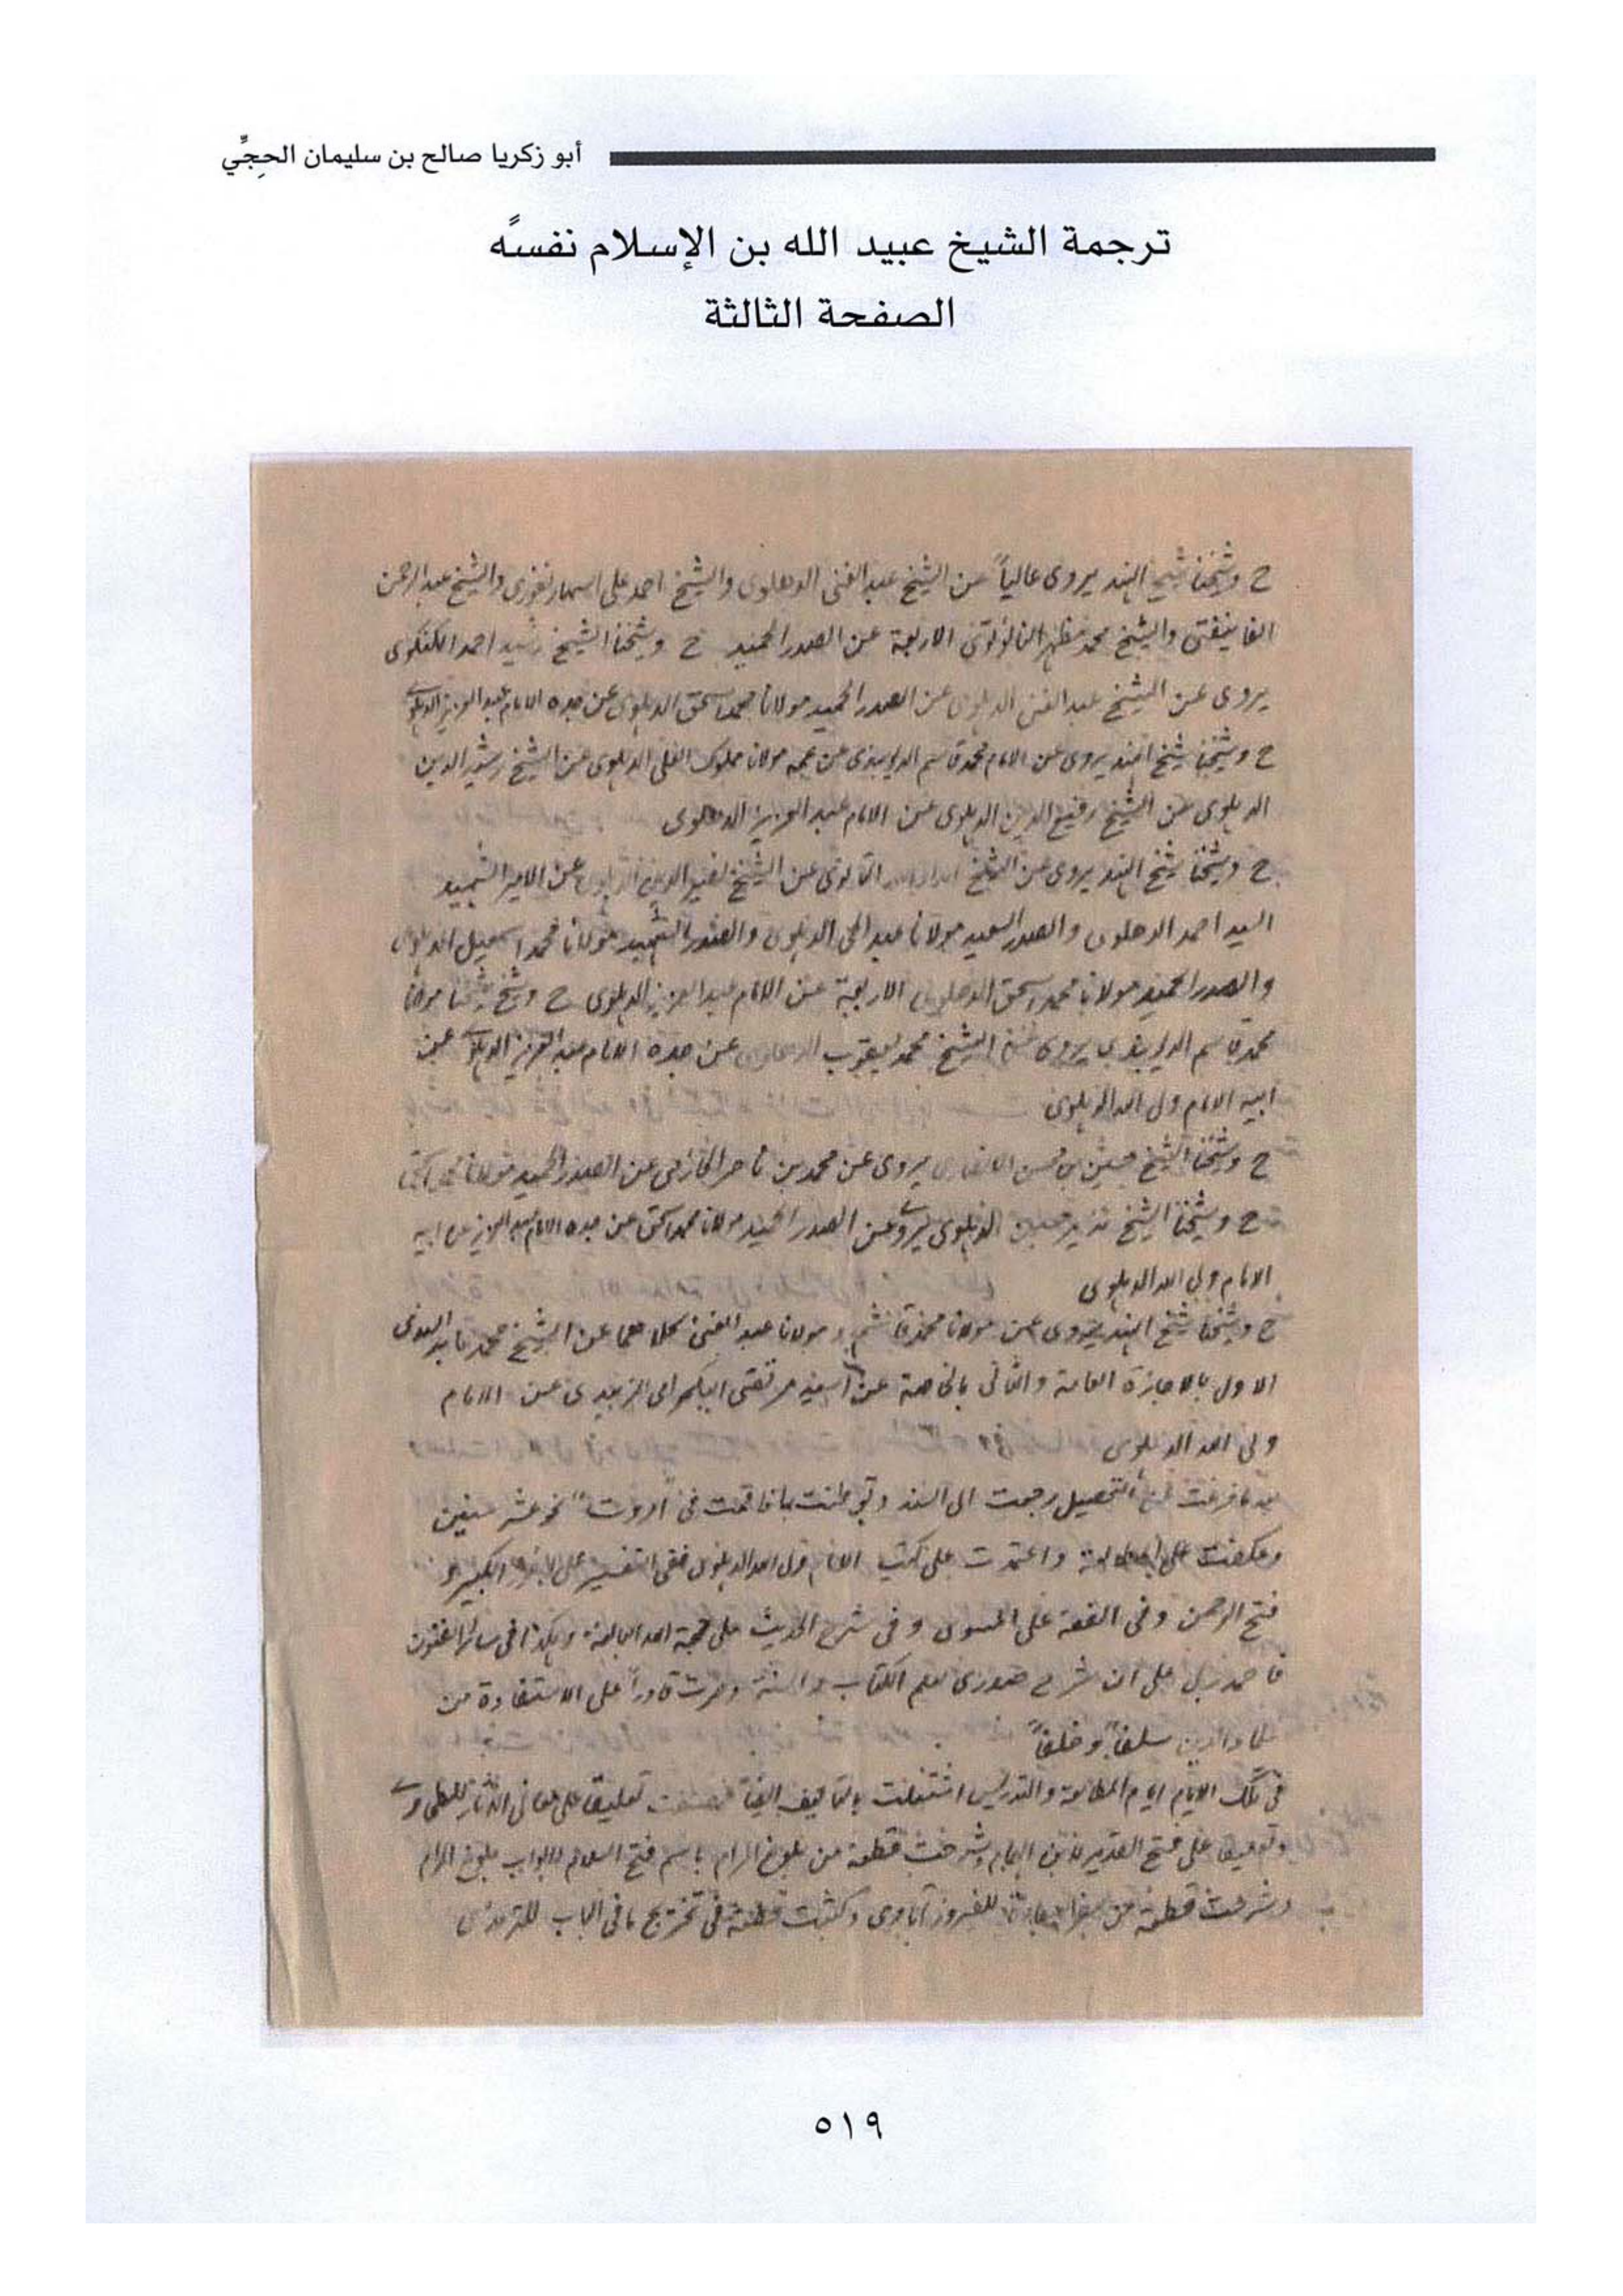 أبو زكريا صالح بن سليمان الحجِّي
ترجمة الشيخ عبيد الله بن الإسلام نفسَه
الصفحة الثالثة
ح وشيخنا شيخ الهند يروى عالياً عن الشيخ عبد الغنى الدهلوى والشيخ احمد على السهارنفورى والشيخ عبد الرحمن
الفانيفتى والشيخ محمد مظهر النانوتوى الاربعة عن الصدر الحميد ح وشيخنا الشيخ رشيد احمد الكنكوى
يروى عن الشيخ عبد الغنى الدهلوى عن الصدر الحميد مولانا محمد اسحق الدهلوى عن جده الامام عبد العزيز الدهلوى
ح وشيخنا شيخ الهند يروى عن الامام محمد قاسم الديوبندى عن عمه مولانا مملوك العلى الدهلوى عن الشيخ رشيد الدين
الدهلوى عن الشيخ رفيع الدين الدهلوى عن الامام عبد العزيز الدهلوى
ح وشيخنا شيخ الهند يروى عن الشيخ امداد الله التانوى عن الشيخ نصير الدين الدهلوى عن الامير الشهيد
السيد احمد الدهلوى والصدر السعيد مولانا عبد الحى الدهلوى والصدر الشهيد مولانا محمد اسمعيل الدهلوى
والصدر الحميد مولانا محمد اسحق الدهلوى الاربعة عن الامام عبد العزيز الدهلوى ح وشيخ شيخنا مولانا
محمد قاسم الديوبندى يروى عن الشيخ محمد يعقوب الدهلوى عن جده الامام عبد العزيز الدهلوى عن
ابيه الامام ولى الله الدهلوى
ح وشيخنا الشيخ حسين بن محسن الانصارى يروى عن محمد بن ناصر الحازمى عن الصدر الحميد مولانا محمد اسحق
ح وشيخنا الشيخ نذير حسين الدهلوى يروى عن الصدر الحميد مولانا محمد اسحق عن جده الامام عبد العزيز عن ابيه
الامام ولى الله الدهلوى
ح وشيخنا شيخ الهند يروى عن مولانا محمد قاسم و مولانا عبد الغنى كلاهما عن الشيخ محمد عابد السندى
الاول بالاجازة العامة والثانى بالخاصة عن السيد مرتضى البلكرامى الزبيدى عن الامام
ولى الله الدهلوى
فرغت من التحصيل رجعت الى السند وتوطنت بها فاقمت فى "امروت" نحو عشر سنين
وعكفت على المطالعة واعتمدت على كتب الامام ولى الله الدهلوى ففى التفسير على الفوز الكبير و
فتح الرحمن وفى الفقه على المسوى وفى شرح الحديث على حجة الله البالغة وهكذا فى سائر الفنون
فاحمد ربى على ان شرح صدرى لعلم الكتاب والسنة وصرت قادراً على الاستفادة من
علماء الدين سلفاً وخلفاً
فى تلك الايام ايام المطالعة والتدريس اشتغلت بالتاليف ايضاً فصنفت تعليقا على معانى الآثار للطحاوى
وتعليقا على فتح القدير لابن الهمام وشرحت قطعة من بلوغ المرام باسم فتح السلام لابواب بلوغ المرام
وشرحت قطعة من سفر السعادة للفيروزآبادى وكتبت قطعة فى تخريج ما فى الباب للترمذى
٥١٩